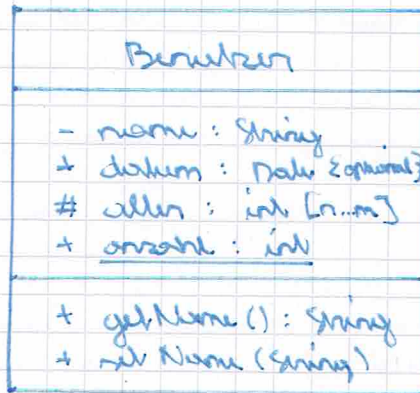 Benutzer
- name : String
+ datum : Date {optional}
# alter : int [n...m]
+ anzahl : int
+ getName () : String
+ setName (String)